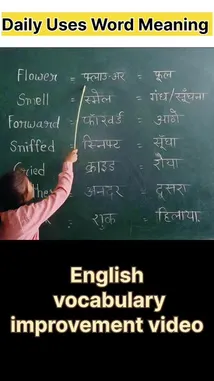 Daily Uses Word Meaning
Flower = फ्लाउअर = फूल
Smell = स्मैल = गंध/सूँघना
Forward = फॉरवर्ड = आगे
Sniffed = स्निफ्ट = सूँघा
Cried = क्राइड = रोया
ther = अनदर = दूसरा
शुक = हिलाया
English
vocabulary
improvement video